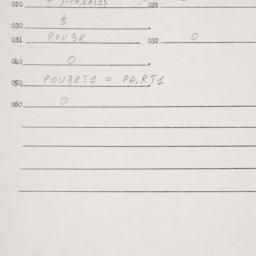 020 021
030 $
031 POU3R 032 0
040 0
050 POU3RT1 = PA.RT1
060 0